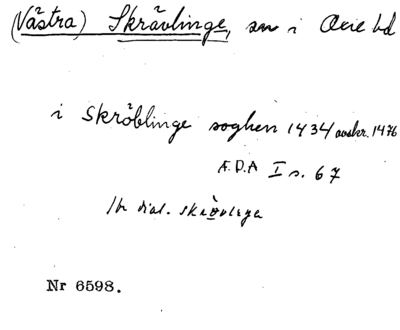 (Västra) Skrävlinge, sn i Oxie hd
i Skröblinge soghen 1434 avskr. 1476
Æ.D.A I s. 67
dial.
Nr 6598.